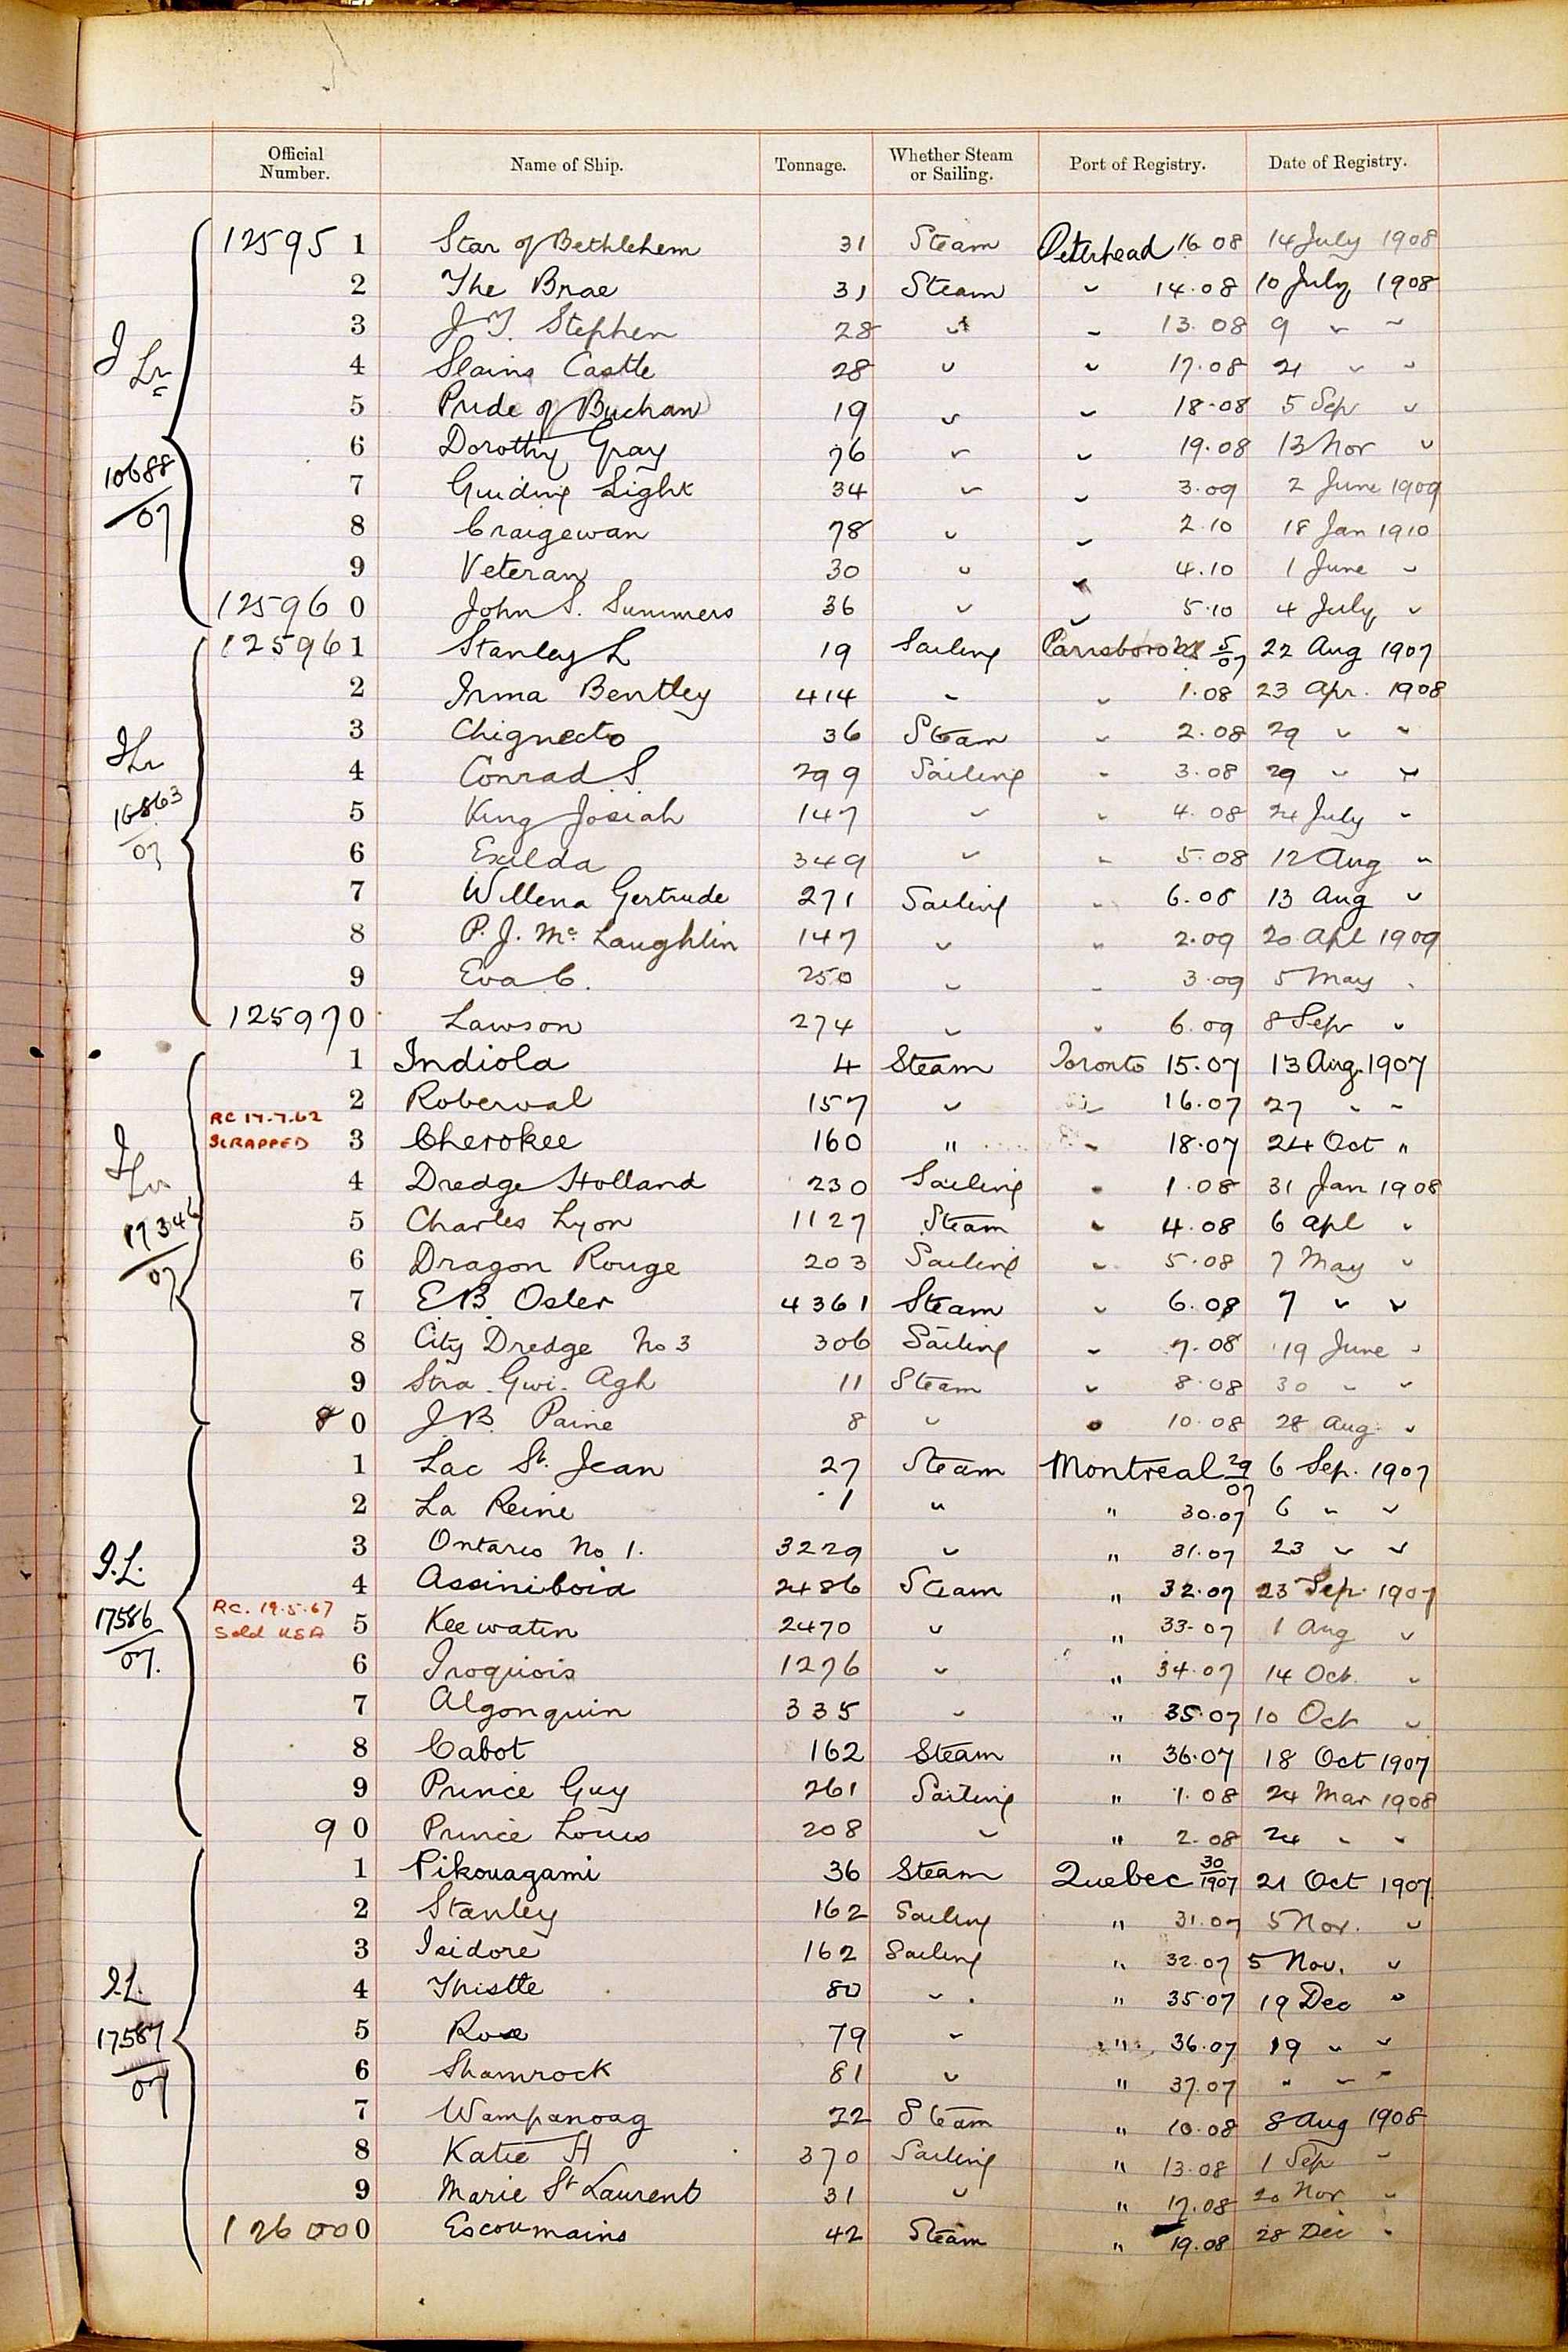 Official Number. Name of Ship. Tonnage. Whether Steam or Sailing. Port of Registry. Date of Registry.
12595 1 Star of Bethlehem 31 Steam Peterhead 16 08 14 July 1908
2 The Brae 31 Steam " 14.08 10 July 1908
3 J T Stephen 28 " " 13.08 9 " "
4 Slains Castle 28 " " 17.08 21 " "
5 Pride of Buchan 19 " " 18.08 5 Sep "
6 Dorothy Gray 76 " " 19.08 13 Nov "
7 Guiding Light 34 " " 3.09 2 June 1909
8 Craigewan 78 " " 2.10 18 Jan 1910
9 Veteran 30 " " 4.10 1 June "
12596 0 John S. Summers 36 " " 5.10 4 July "
I Lr 10688/07
125961 Stanley L 19 Sailing Parrsboro NS 5/07 22 Aug 1907
2 Irma Bentley 414 " " 1.08 23 Apr. 1908
3 Chignecto 36 Steam " 2.08 29 " "
4 Conrad S. 299 Sailing " 3.08 29 " "
5 King Josiah 147 " " 4.08 24 July "
6 Exilda 349 " " 5.08 12 Aug "
7 Willena Gertrude 271 Sailing " 6.08 13 Aug "
8 P. J. Mc Laughlin 147 " " 2.09 20 Apl 1909
9 Eva C. 250 " " 3.09 5 May "
12597 0 Lawson 274 " " 6.09 8 Sep "
I Lr 16863/07
1 Indiola 4 Steam Toronto 15.07 13 Aug. 1907
2 Roberval 157 " " 16.07 27 " "
RC 17.7.62
SCRAPPED 3 Cherokee 160 " " 18.07 24 Oct "
4 Dredge Holland 230 Sailing " 1.08 31 Jan 1908
5 Charles Lyon 1127 Steam " 4.08 6 Apl "
6 Dragon Rouge 203 Sailing " 5.08 7 May "
7 E.B. Osler 4361 Steam " 6.08 7 " "
8 City Dredge No 3 306 Sailing " 7.08 19 June "
9 Stra. Gwi. Agh 11 Steam " 8.08 30 " "
8 0 J. B. Paine 8 " " 10.08 28 Aug. "
I Lr 17346/07
1 Lac St. Jean 27 Steam Montreal 29/07 6 Sep. 1907
2 La Reine 1 " " 30.07 6 " "
3 Ontario No 1. 3229 " " 31.07 23 " "
4 Assiniboia 2486 Steam " 32.07 23 Sep. 1907
RC. 19.5.67
Sold USA 5 Keewatin 2470 " " 33.07 1 Aug "
6 Iroquois 1276 " " 34.07 14 Oct. "
7 Algonquin 335 " " 35.07 10 Oct "
8 Cabot 162 Steam " 36.07 18 Oct 1907
9 Prince Guy 261 Sailing " 1.08 24 Mar 1908
9 0 Prince Louis 208 " " 2.08 24 " "
I.L. 17586/07.
1 Pikouagami 36 Steam Quebec 30/1907 21 Oct 1907
2 Stanley 162 Sailing " 31.07 5 Nov. "
3 Isidore 162 Sailing " 32.07 5 Nov. "
4 Thistle 80 " " 35.07 19 Dec "
5 Rose 79 " " 36.07 19 " "
6 Shamrock 81 " " 37.07 " " "
7 Wampanoag 22 Steam " 10.08 8 Aug 1908
8 Katie H 370 Sailing " 13.08 1 Sep "
9 Marie St Laurent 31 " " 17.08 20 Nov "
126000 Escoumains 42 Steam " 19.08 28 Dec "
I.L. 17587/07